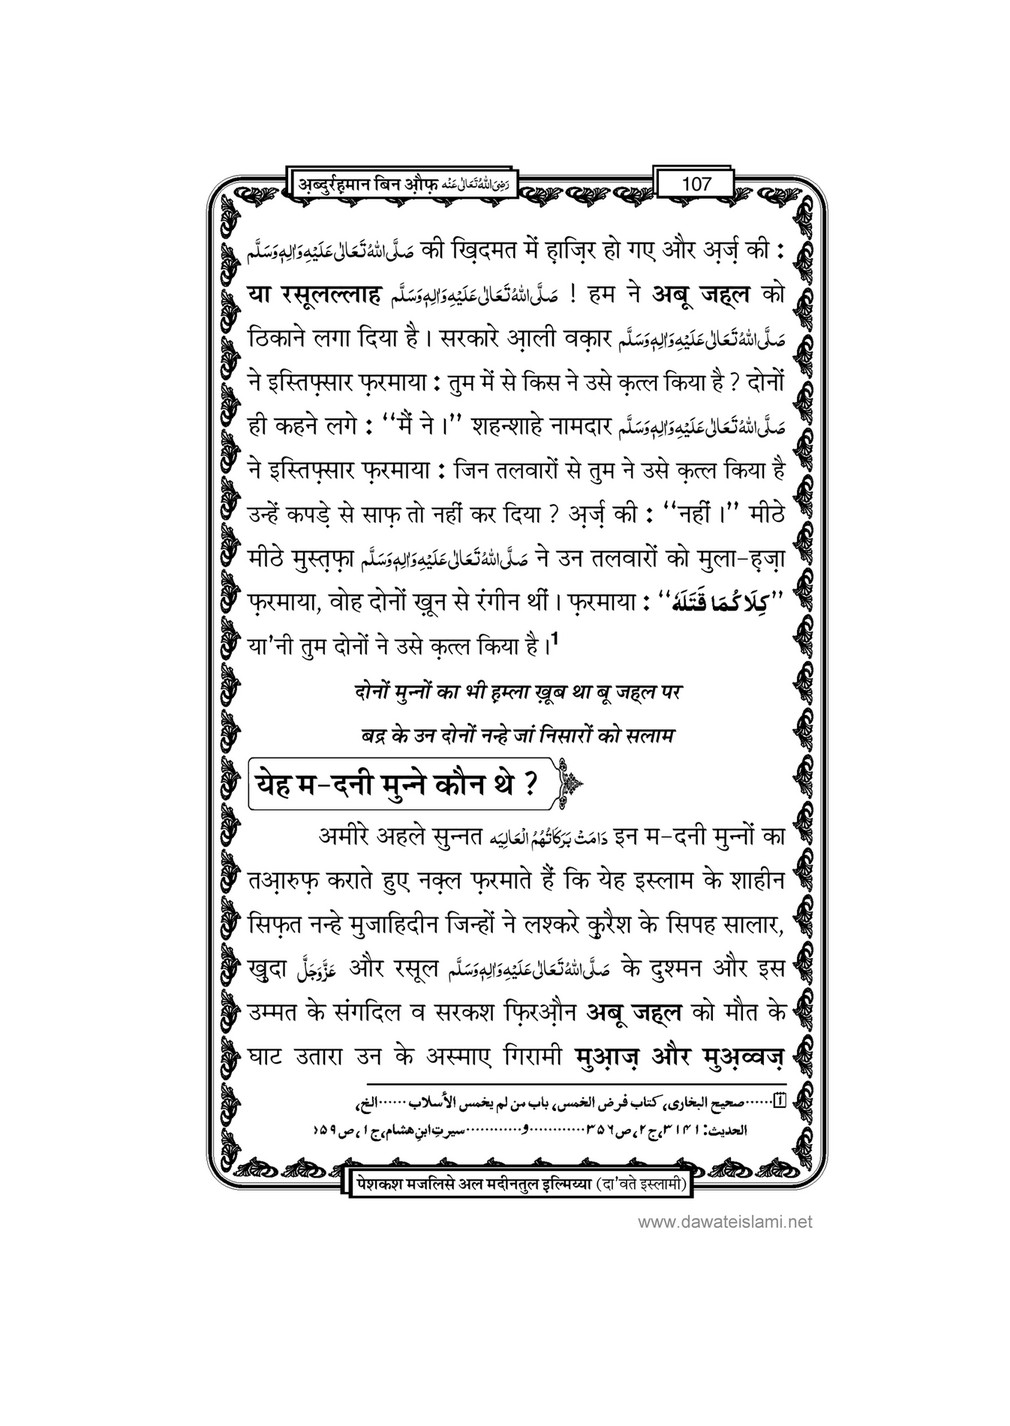 अ़ब्दुर्रह़मान बिन औ़फ़ رَضِیَ اللّٰہُ تَعَالٰی عَنْہ
107
صَلَّی اللّٰہُ تَعَالٰی عَلَیْہِ وَاٰلِہٖ وَسَلَّم की ख़िदमत में ह़ाज़िर हो गए और अ़र्ज़ की :
या रसूलल्लाह صَلَّی اللّٰہُ تَعَالٰی عَلَیْہِ وَاٰلِہٖ وَسَلَّم ! हम ने अबू जह्ल को
ठिकाने लगा दिया है । सरकारे आ़ली वक़ार صَلَّی اللّٰہُ تَعَالٰی عَلَیْہِ وَاٰلِہٖ وَسَلَّم
ने इस्तिफ़्सार फ़रमाया : तुम में से किस ने उसे क़त्ल किया है ? दोनों
ही कहने लगे : ‘‘मैं ने ।’’ शहन्शाहे नामदार صَلَّی اللّٰہُ تَعَالٰی عَلَیْہِ وَاٰلِہٖ وَسَلَّم
ने इस्तिफ़्सार फ़रमाया : जिन तलवारों से तुम ने उसे क़त्ल किया है
उन्हें कपड़े से साफ़ तो नहीं कर दिया ? अ़र्ज़ की : ‘‘नहीं ।’’ मीठे
मीठे मुस्त़फ़ा صَلَّی اللّٰہُ تَعَالٰی عَلَیْہِ وَاٰلِہٖ وَسَلَّم ने उन तलवारों को मुला-ह़ज़ा
फ़रमाया, वोह दोनों ख़ून से रंगीन थीं । फ़रमाया : ‘‘کِلَاکُمَا قَتَلَہٗ’’
या’नी तुम दोनों ने उसे क़त्ल किया है ।1
दोनों मुन्नों का भी ह़म्ला ख़ूब था बू जह्ल पर
बद्र के उन दोनों नन्हे जां निसारों को सलाम
येह म-दनी मुन्ने कौन थे ?
अमीरे अहले सुन्नत دَامَتْ بَرَکَاتُہُمُ الْعَالِیَہ इन म-दनी मुन्नों का
तआ़रुफ़ कराते हुए नक़्ल फ़रमाते हैं कि येह इस्लाम के शाहीन
सिफ़त नन्हे मुजाहिदीन जिन्हों ने लश्करे क़ुरैश के सिपह सालार,
ख़ुदा عَزَّوَجَلَّ और रसूल صَلَّی اللّٰہُ تَعَالٰی عَلَیْہِ وَاٰلِہٖ وَسَلَّم के दुश्मन और इस
उम्मत के संगदिल व सरकश फ़िरऔ़न अबू जह्ल को मौत के
घाट उतारा उन के अस्माए गिरामी मुआ़ज़ और मुअ़व्वज़
1......صحیح البخاری، کتاب فرض الخمس، باب من لم یخمس الأسلاب......الخ،
الحدیث: ۳۱۴۱، ج۲، ص۳۵۶............و............سیرتِ ابنِ ھشام، ج۱، ص۱۵۹
पेशकश मजलिसे अल मदीनतुल इल्मिय्या (दा’वते इस्लामी)
www.dawateislami.net